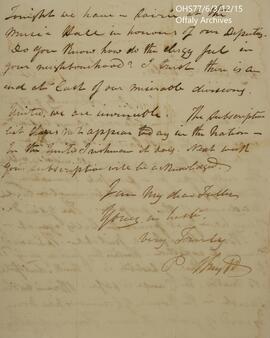 OHS77/6/3/12/15
Offaly Archives
Tonight we have a Soirée in the
Music Hall in honour of our Deputy.
Do you know how do the clergy feel in
your neighbourhood? I trust there is an
end at last of our miserable divisions.
United, we are invincible. The Subscription
list does not appear today in the Nation –
In the United Irishman it does. Next week
your subscription will be acknowledged
I am My dear
Yours in haste
very Truly
P.